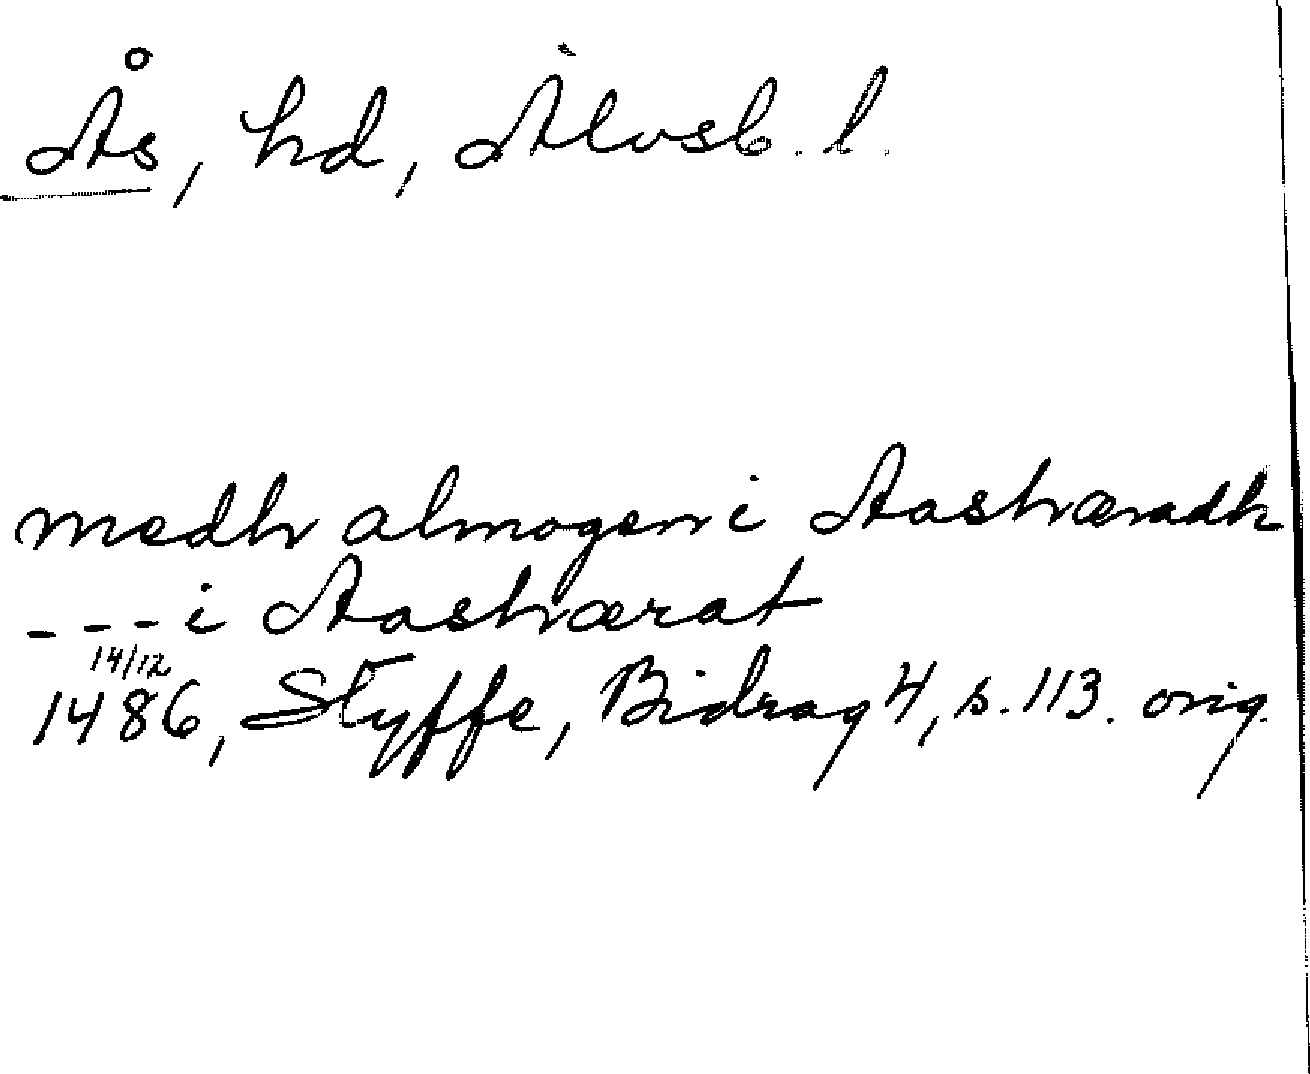 Ås, hd, Älvsb. l.
medh almogen i Aashæradh
--- i Aashærat
14/12
1486, Styffe, Bidrag 4, s. 113. orig.